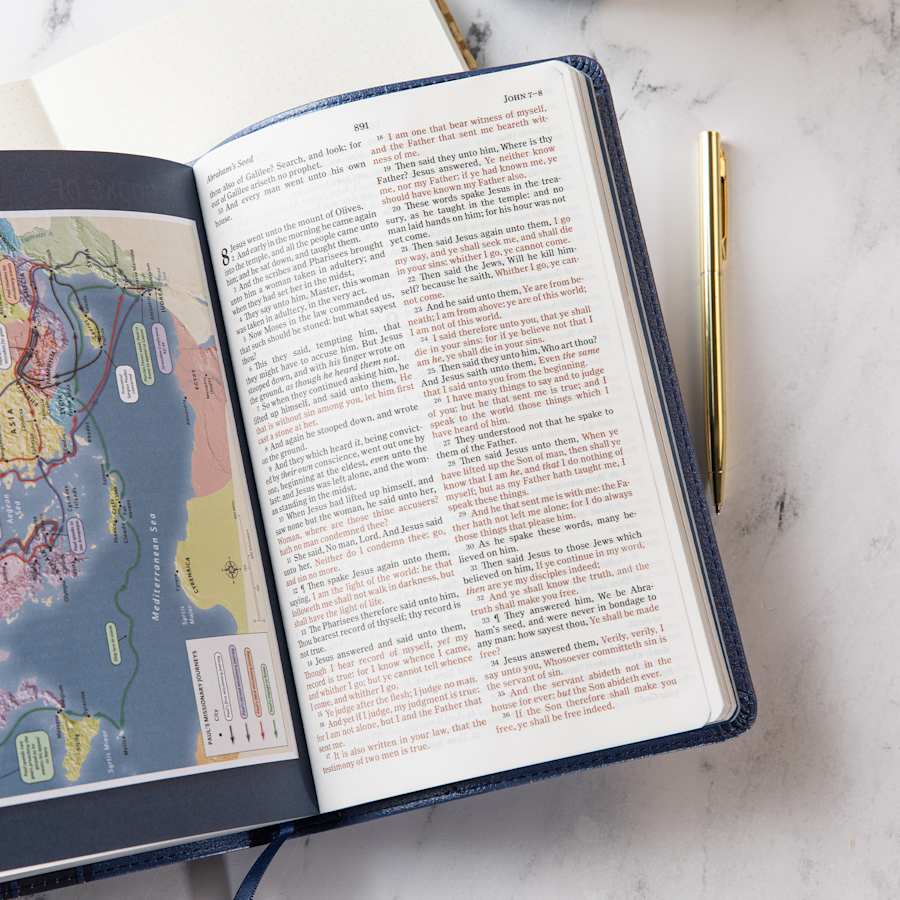 ASIA
Aegean
Sea
EGYPT
Mediterranean Sea
CYRENAICA
Syrtis
Major
PAUL'S MISSIONARY JOURNEYS
City
Abraham's Seed
891
JOHN 7–8
thou also of Galilee? Search, and look: for
out of Galilee ariseth no prophet.
53 And every man went unto his own
house.
8 Jesus went unto the mount of Olives.
2 And early in the morning he came again
into the temple, and all the people came unto
him; and he sat down, and taught them.
3 And the scribes and Pharisees brought
unto him a woman taken in adultery; and
when they had set her in the midst,
4 They say unto him, Master, this woman
was taken in adultery, in the very act.
5 Now Moses in the law commanded us,
that such should be stoned: but what sayest
thou?
6 This they said, tempting him, that
they might have to accuse him. But Jesus
stooped down, and with his finger wrote on
the ground, as though he heard them not.
7 So when they continued asking him, he
lifted up himself, and said unto them, He
that is without sin among you, let him first
cast a stone at her.
8 And again he stooped down, and wrote
on the ground.
9 And they which heard it, being convict-
ed by their own conscience, went out one by
one, beginning at the eldest, even unto the
last: and Jesus was left alone, and the wom-
an standing in the midst.
10 When Jesus had lifted up himself, and
saw none but the woman, he said unto her,
Woman, where are those thine accusers?
hath no man condemned thee?
11 She said, No man, Lord. And Jesus said
unto her, Neither do I condemn thee: go,
and sin no more.
12 ¶ Then spake Jesus again unto them,
saying, I am the light of the world: he that
followeth me shall not walk in darkness, but
shall have the light of life.
13 The Pharisees therefore said unto him,
Thou bearest record of thyself; thy record is
not true.
14 Jesus answered and said unto them,
Though I bear record of myself, yet my
record is true: for I know whence I came,
and whither I go; but ye cannot tell whence
I come, and whither I go.
15 Ye judge after the flesh; I judge no man.
16 And yet if I judge, my judgment is true:
for I am not alone, but I and the Father that
sent me.
17 It is also written in your law, that the
testimony of two men is true.
18 I am one that bear witness of myself,
and the Father that sent me beareth wit-
ness of me.
19 Then said they unto him, Where is thy
Father? Jesus answered, Ye neither know
me, nor my Father: if ye had known me, ye
should have known my Father also.
20 These words spake Jesus in the trea-
sury, as he taught in the temple: and no
man laid hands on him; for his hour was not
yet come.
21 Then said Jesus again unto them, I go
my way, and ye shall seek me, and shall die
in your sins: whither I go, ye cannot come.
22 Then said the Jews, Will he kill him-
self? because he saith, Whither I go, ye can-
not come.
23 And he said unto them, Ye are from be-
neath; I am from above: ye are of this world;
I am not of this world.
24 I said therefore unto you, that ye shall
die in your sins: for if ye believe not that I
am he, ye shall die in your sins.
25 Then said they unto him, Who art thou?
And Jesus saith unto them, Even the same
that I said unto you from the beginning.
26 I have many things to say and to judge
of you: but he that sent me is true; and I
speak to the world those things which I
have heard of him.
27 They understood not that he spake to
them of the Father.
28 Then said Jesus unto them, When ye
have lifted up the Son of man, then shall ye
know that I am he, and that I do nothing of
myself; but as my Father hath taught me, I
speak these things.
29 And he that sent me is with me: the Fa-
ther hath not left me alone; for I do always
those things that please him.
30 As he spake these words, many be-
lieved on him.
31 Then said Jesus to those Jews which
believed on him, If ye continue in my word,
then are ye my disciples indeed;
32 And ye shall know the truth, and the
truth shall make you free.
33 ¶ They answered him, We be Abra-
ham's seed, and were never in bondage to
any man: how sayest thou, Ye shall be made
free?
34 Jesus answered them, Verily, verily, I
say unto you, Whosoever committeth sin is
the servant of sin.
35 And the servant abideth not in the
house for ever: but the Son abideth ever.
36 If the Son therefore shall make you
free, ye shall be free indeed.